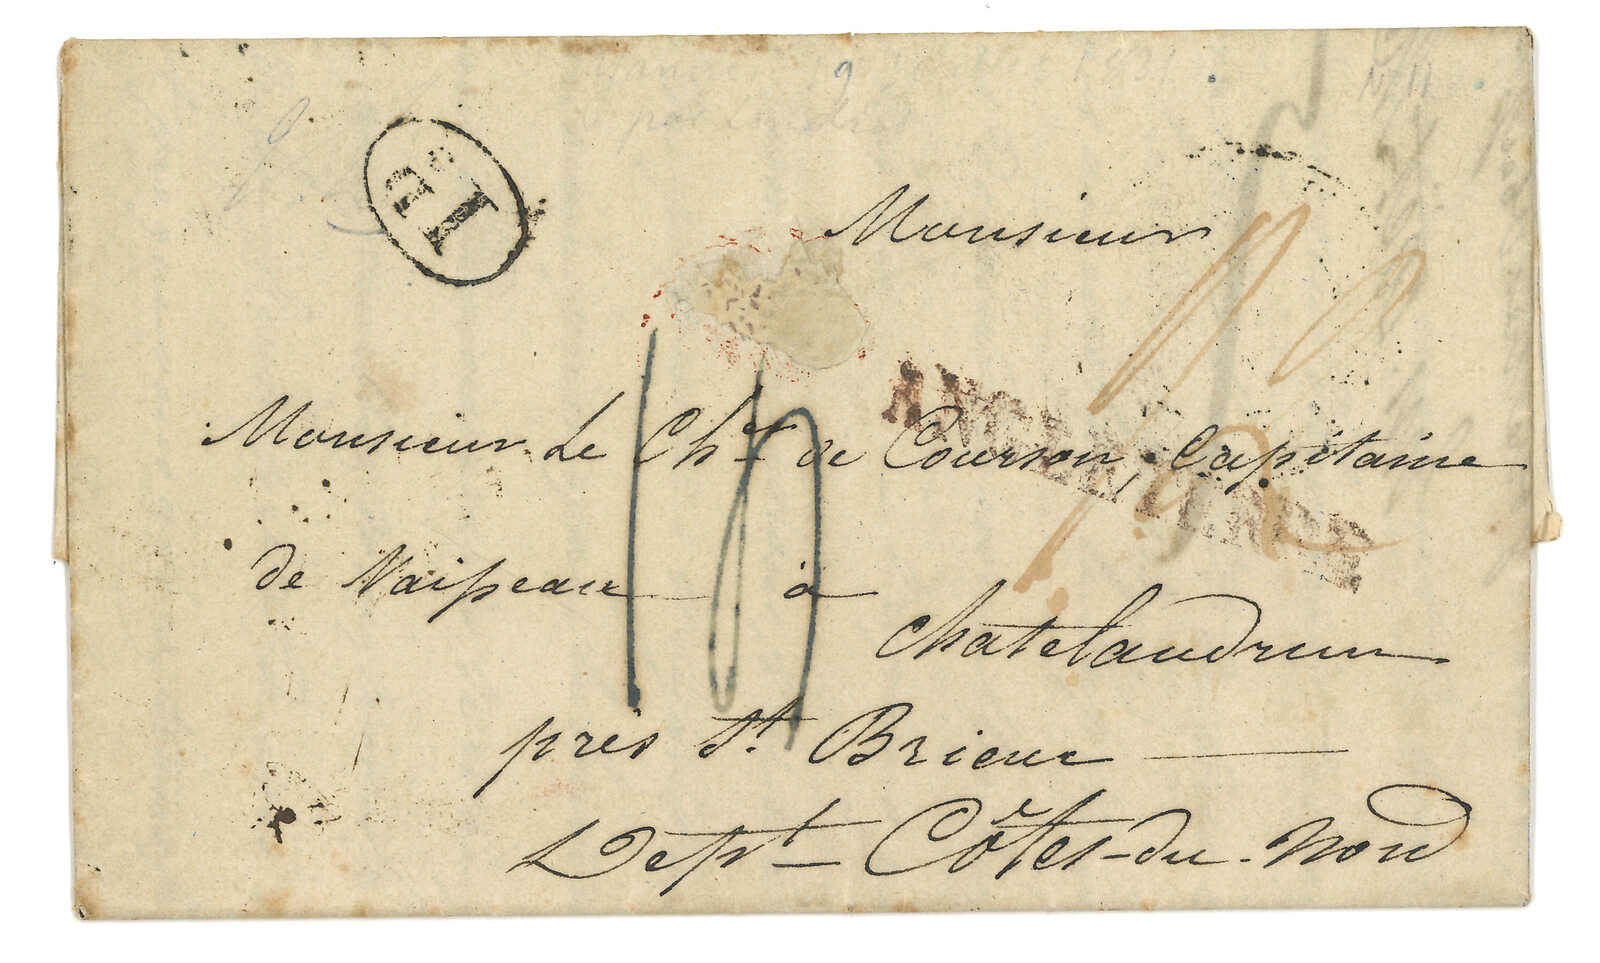 Monsieur
Monsieur Le Ch.er de Courson, Capitaine
de Vaisseau à
Chatelaudrun
près St. Brieuc
Dept Côtes-du-Nord
ANGLETERRE